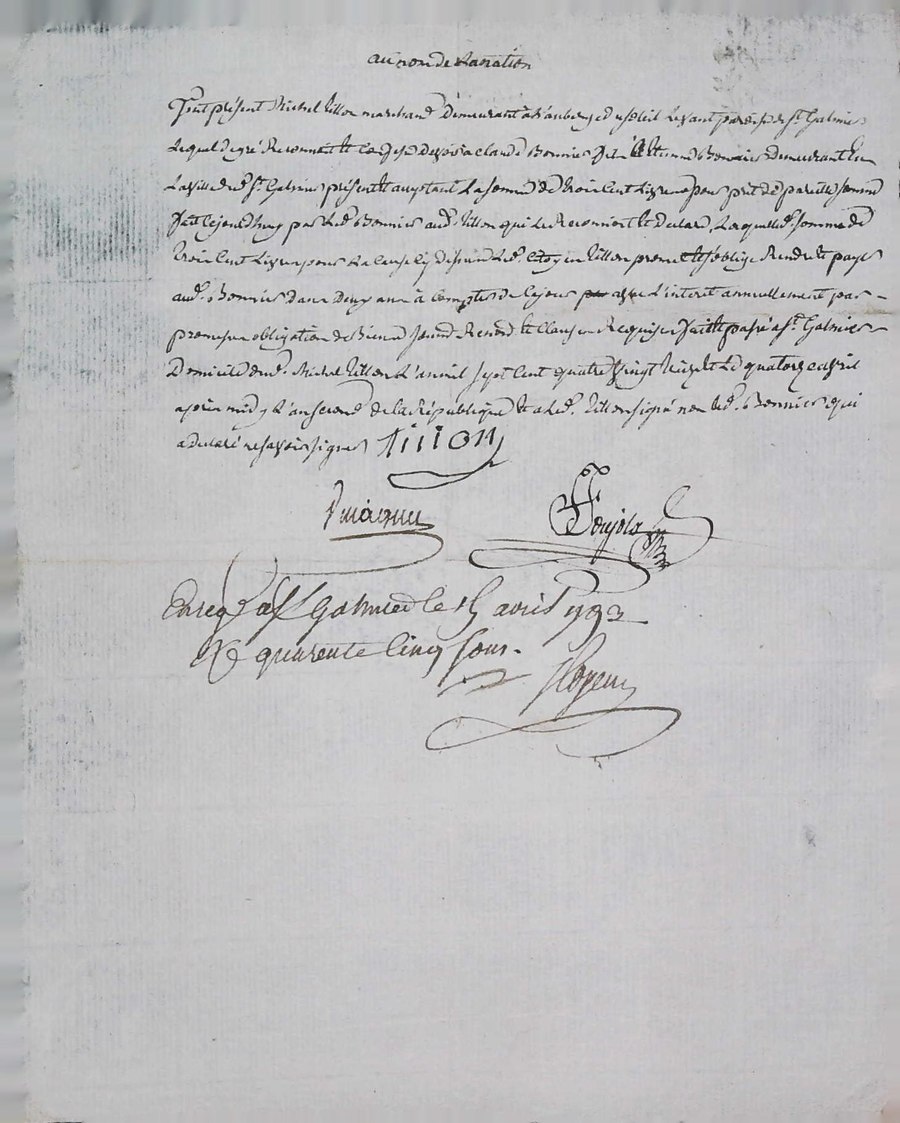 au nom de La nation
fut présent Michel tillon marchand demeurant à l'auberge du soleil Levant paroisse de St. Galmier
Lequel de gré Reconnait et Confesse devoir a claude Bonnier fils à Etienne Bonnier demeurant En
La ville dud. St. Galmier présent et acceptant La somme de trois cent Livres pour prit de pareille somme
fait Cejourdhuy par Led. Bonnier aud. tillon qui Le Reconnoit et Declare, Laquelle d. somme de
trois Cent Livres pour La cause cy dessus Led. Citoyen tillon promet et s'oblige Rendre et payer
aud. Bonnier Dans Deux ans à Compter de Cejour avec L'interet annuellement par
promesse obligation de Biens soumd. Renond. et Clauses Requises fait et passé a St. Galmier
Domicile dud. Michel tillon L'an mil sept Cent quatre vingt treize et Le quatorze avril
après midy L'an second de la République et a Led. tillon signé non Led. Bonnier qui
a declaré ne savoir signer tillon
Pujols
Enreg. a St Galmier le 15 avril 1793
R quarente Cinq sous.